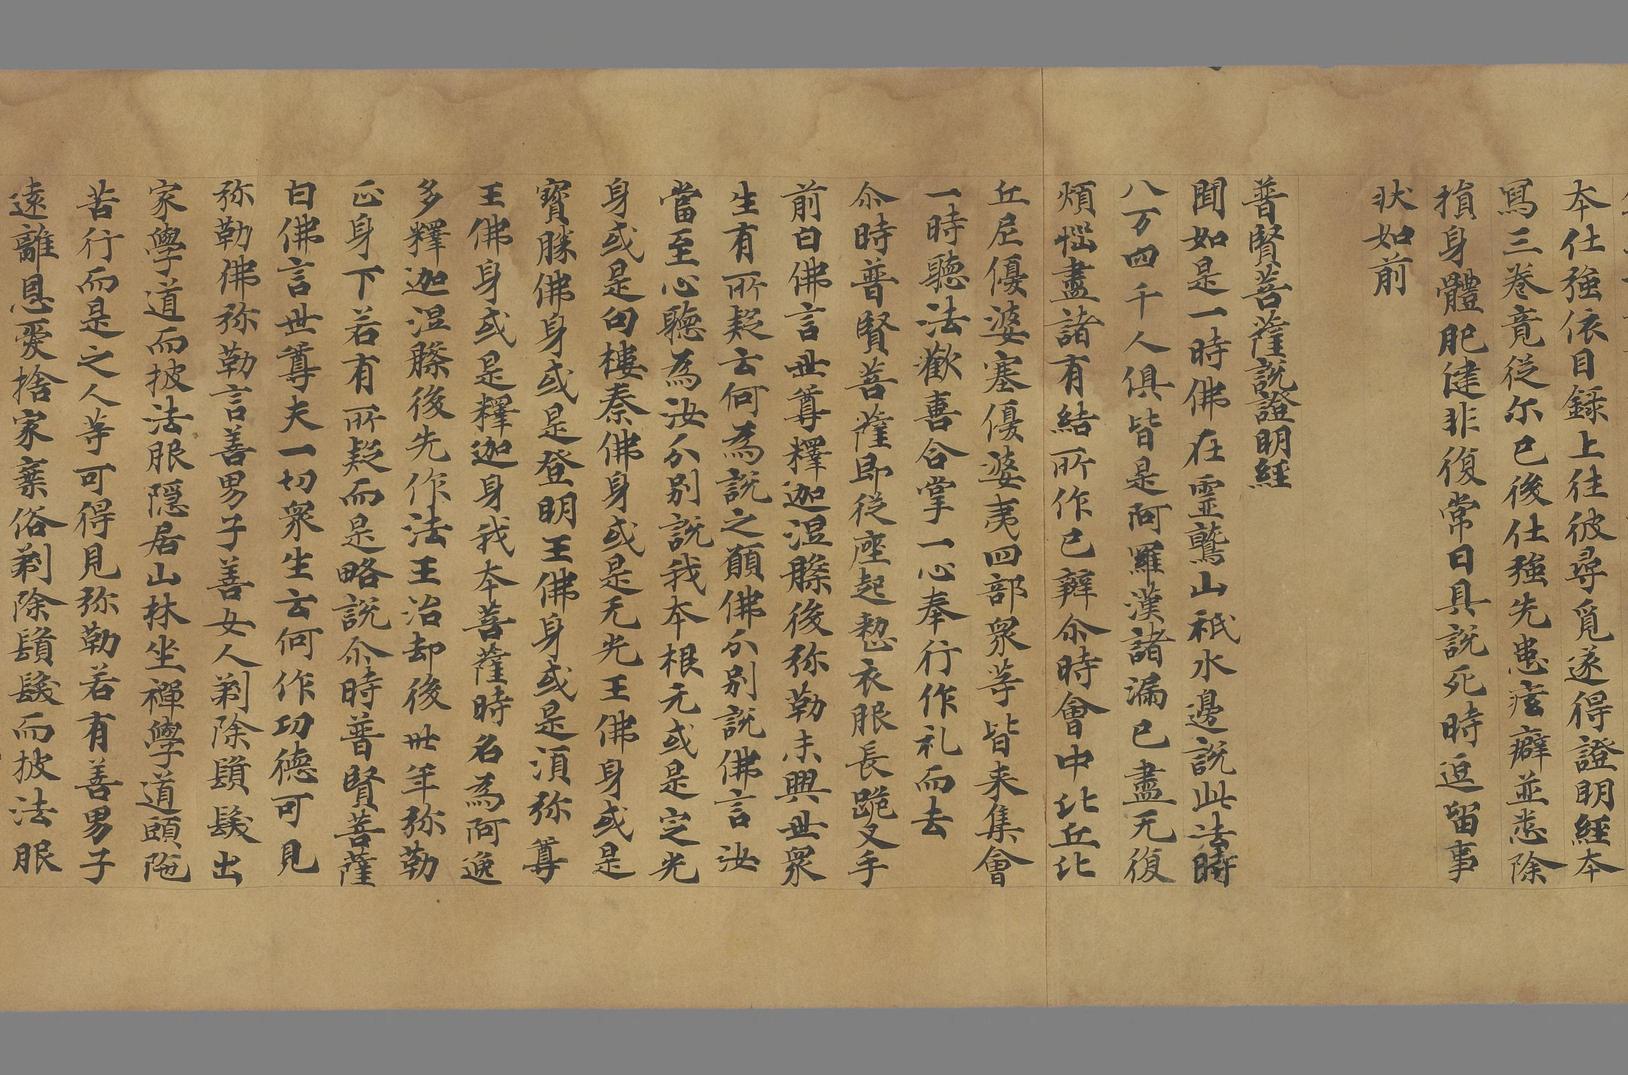 本仕強依目録上往彼尋覓遂得證明經本
冩三卷竟從尓已後仕強先患痃癖並悉除
損身體肥健非復常日具說死時迫留事
狀如前
普賢菩薩說證明經
聞如是一時佛在霊鷲山祇水邊說此法時
八万四千人俱皆是阿羅漢諸漏已盡无復
煩惱盡諸有結所作已辦尒時會中比丘比
丘尼優婆塞優婆夷四部衆等皆来集會
一時聽法歡喜合掌一心奉行作礼而去
尒時普賢菩薩即從座起愗衣服長跪叉手
前白佛言世尊釋迦涅槃後弥勒未興世衆
生有所疑云何為說之願佛分別說佛言汝
當至心聽為汝分別說我本根元或是定光
身或是句樓秦佛身或是无光王佛身或是
寶勝佛身或是登明王佛身或是須弥尊
王佛身或是釋迦身我本菩薩時名為阿逸
多釋迦涅槃後先作法王治却後卅年弥勒
正身下若有所疑而是略說尒時普賢菩薩
白佛言世尊夫一切衆生云何作功德可見
弥勒佛弥勒言善男子善女人剃除鬚髮出
家學道而披法服隱居山林坐禪學道頭陁
苦行而是之人等可得見弥勒若有善男子
遠離恩愛捨家棄俗剃除鬚髮而披法服